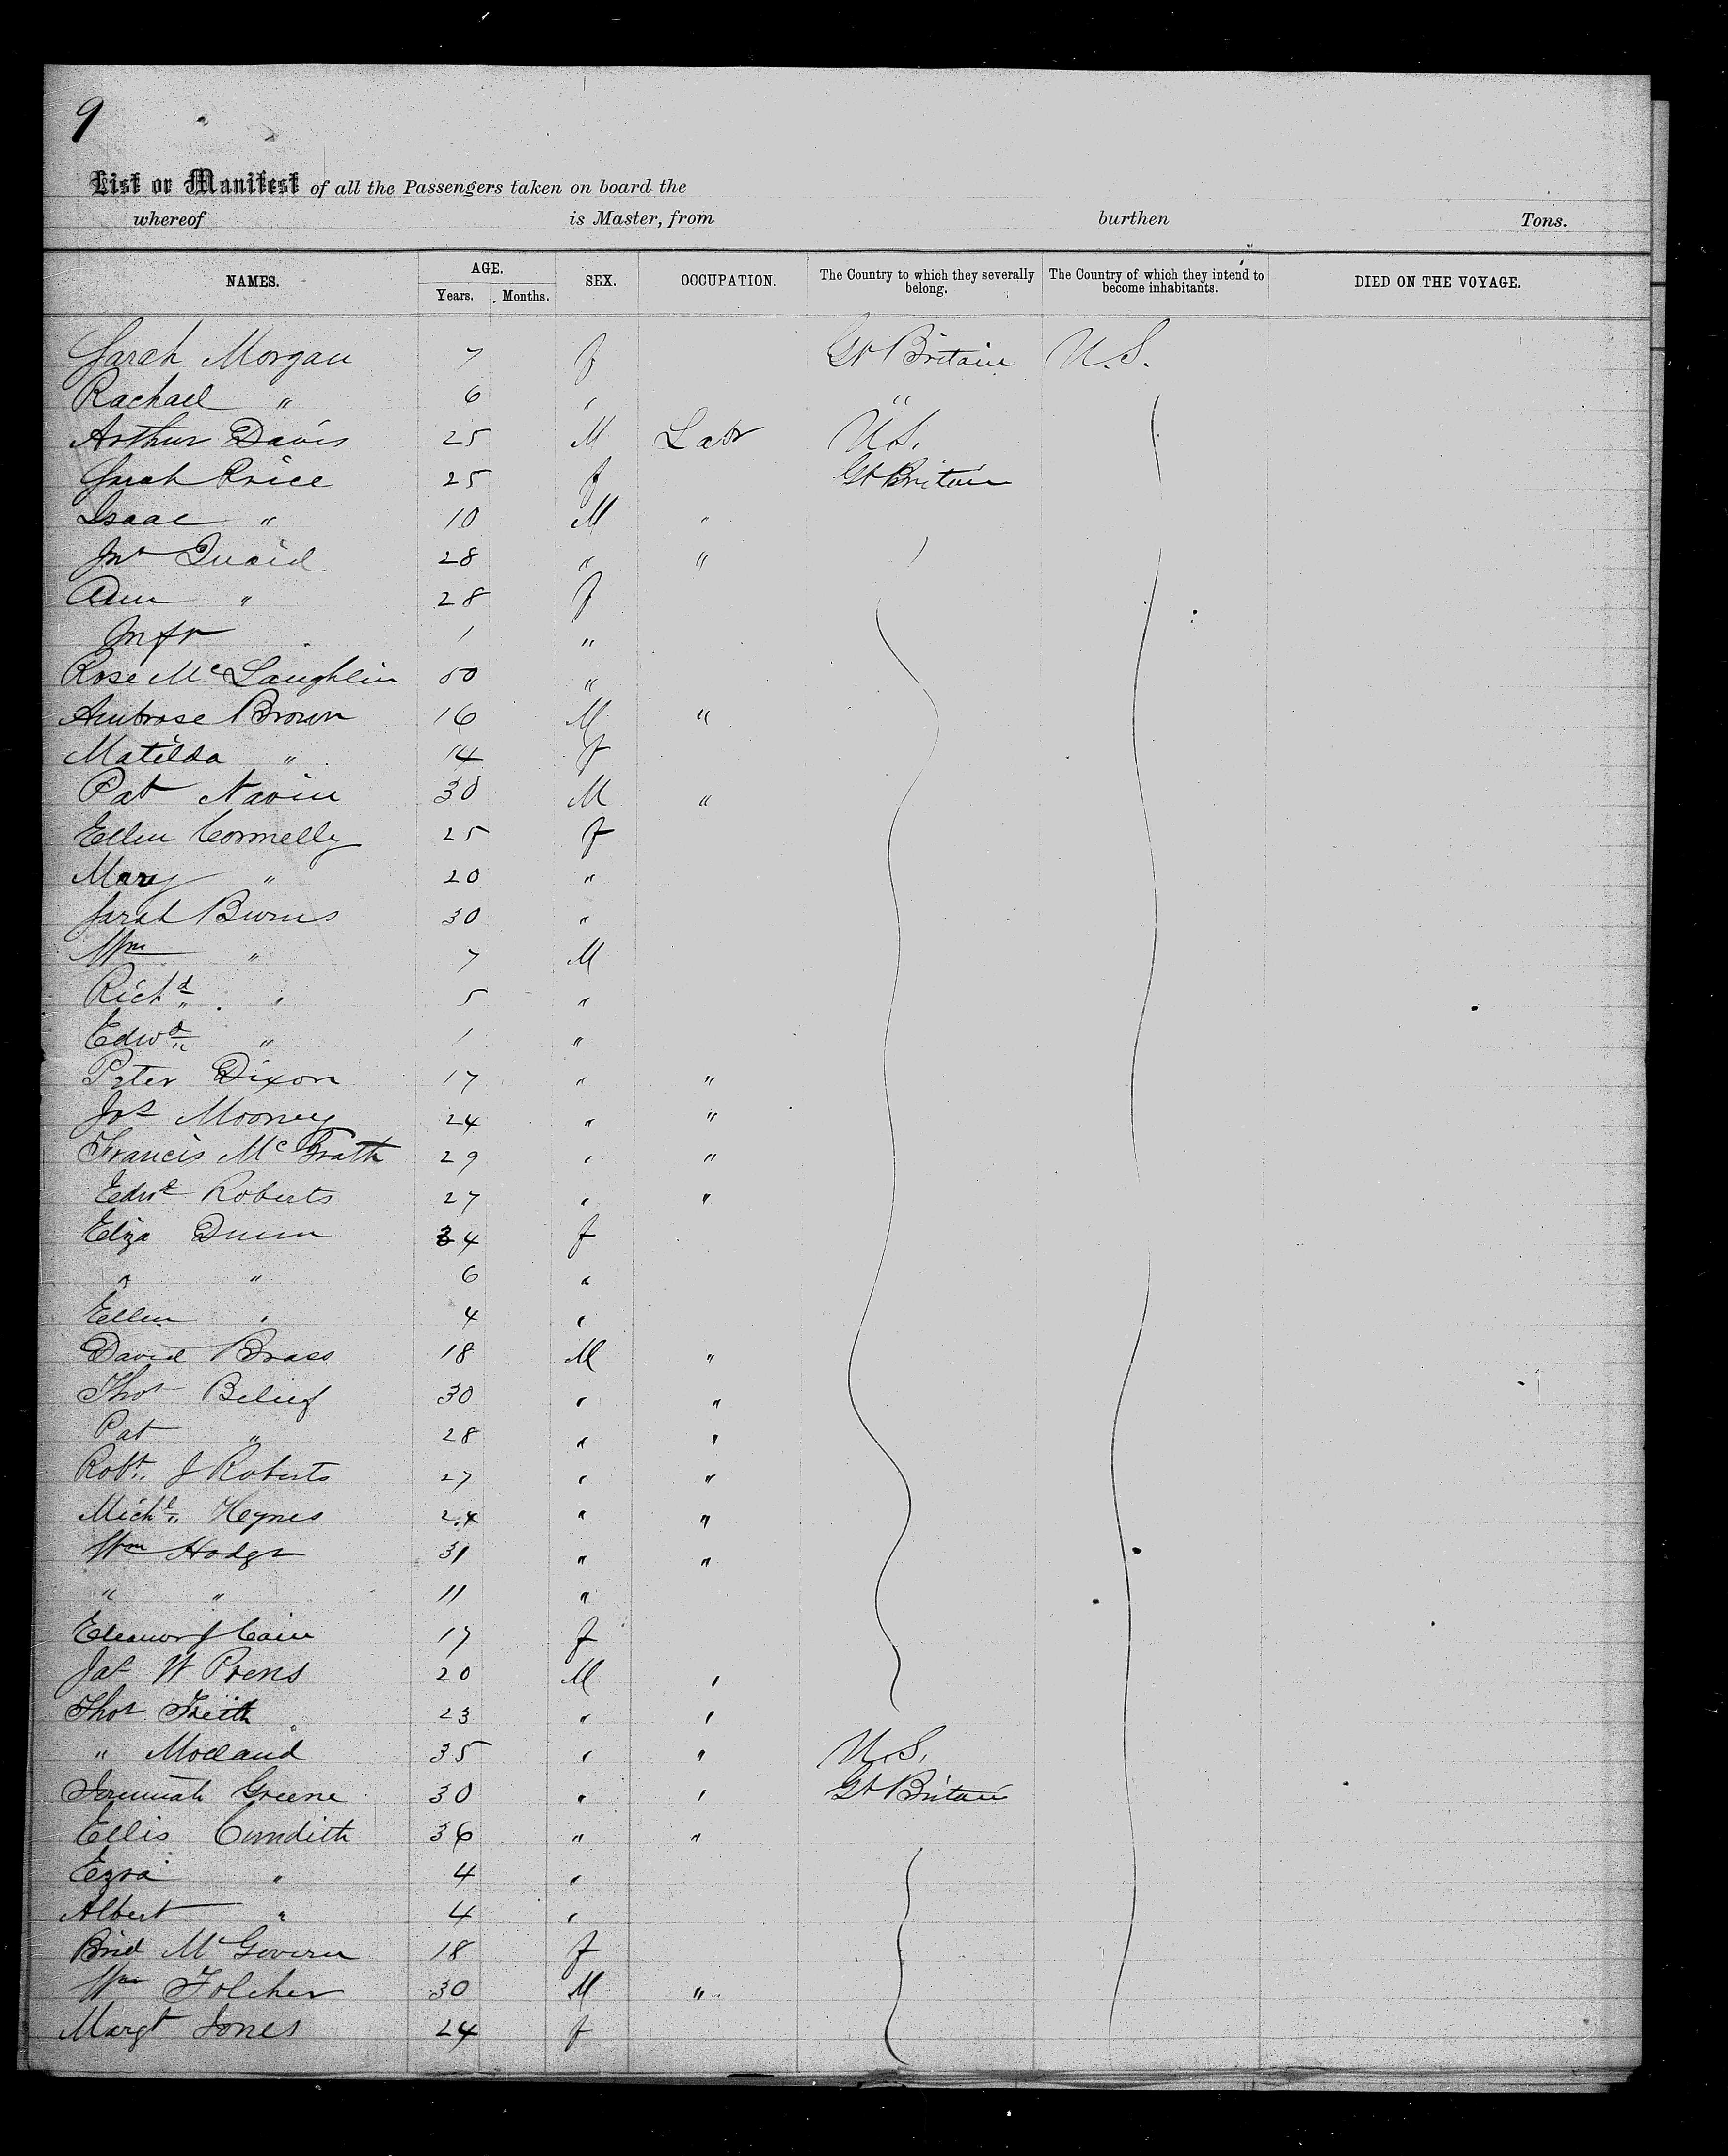 9
List or Manifest of all the Passengers taken on board the
whereof is Master, from burthen Tons.
NAMES. AGE. Years. Months. SEX. OCCUPATION. The Country to which they severally belong. The Country of which they intend to become inhabitants. DIED ON THE VOYAGE.
Sarah Morgan 7 f Gt Britain U.S.
Rachael " 6 " "
Arthur Davis 25 M Labr U.S.
Sarah Price 25 f Gt Britain
Isaac " 10 M "
Jno Quaid 28 " "
Ann " 28 f
Inft 1 "
Rose McLaughlin 50 "
Ambrose Brown 16 M "
Matilda " 14 f
Pat Navin 30 M "
Ellen Connelly 25 f
Mary " 20 "
Sarah Burns 30 "
Wm " 7 M
Richd " 5 "
Edwd " 1 "
Peter Dixon 17 " "
Jos Mooney 24 " "
Francis McGrath 29 " "
Edwd Roberts 27 " "
Eliza Dunn 34 f
" " 6 "
Ellen " 4 "
David Brass 18 M "
Thos 30 " "
Pat " 28 " "
Robt J Roberts 27 " "
Michl Heynes 24 " "
Wm Hodge 31 " "
" " 11 "
Eleanor J Cain 17 f
Jas W 20 M "
Thos Keith 23 " "
" 35 " " U.S.
Jeremiah Greene 30 " " Gt Britain
Ellis Cundith 36 " "
Ezra " 4 "
Albert " 4 "
Brid McGovern 18 f
Wm Folcher 30 M "
Margt Jones 24 f